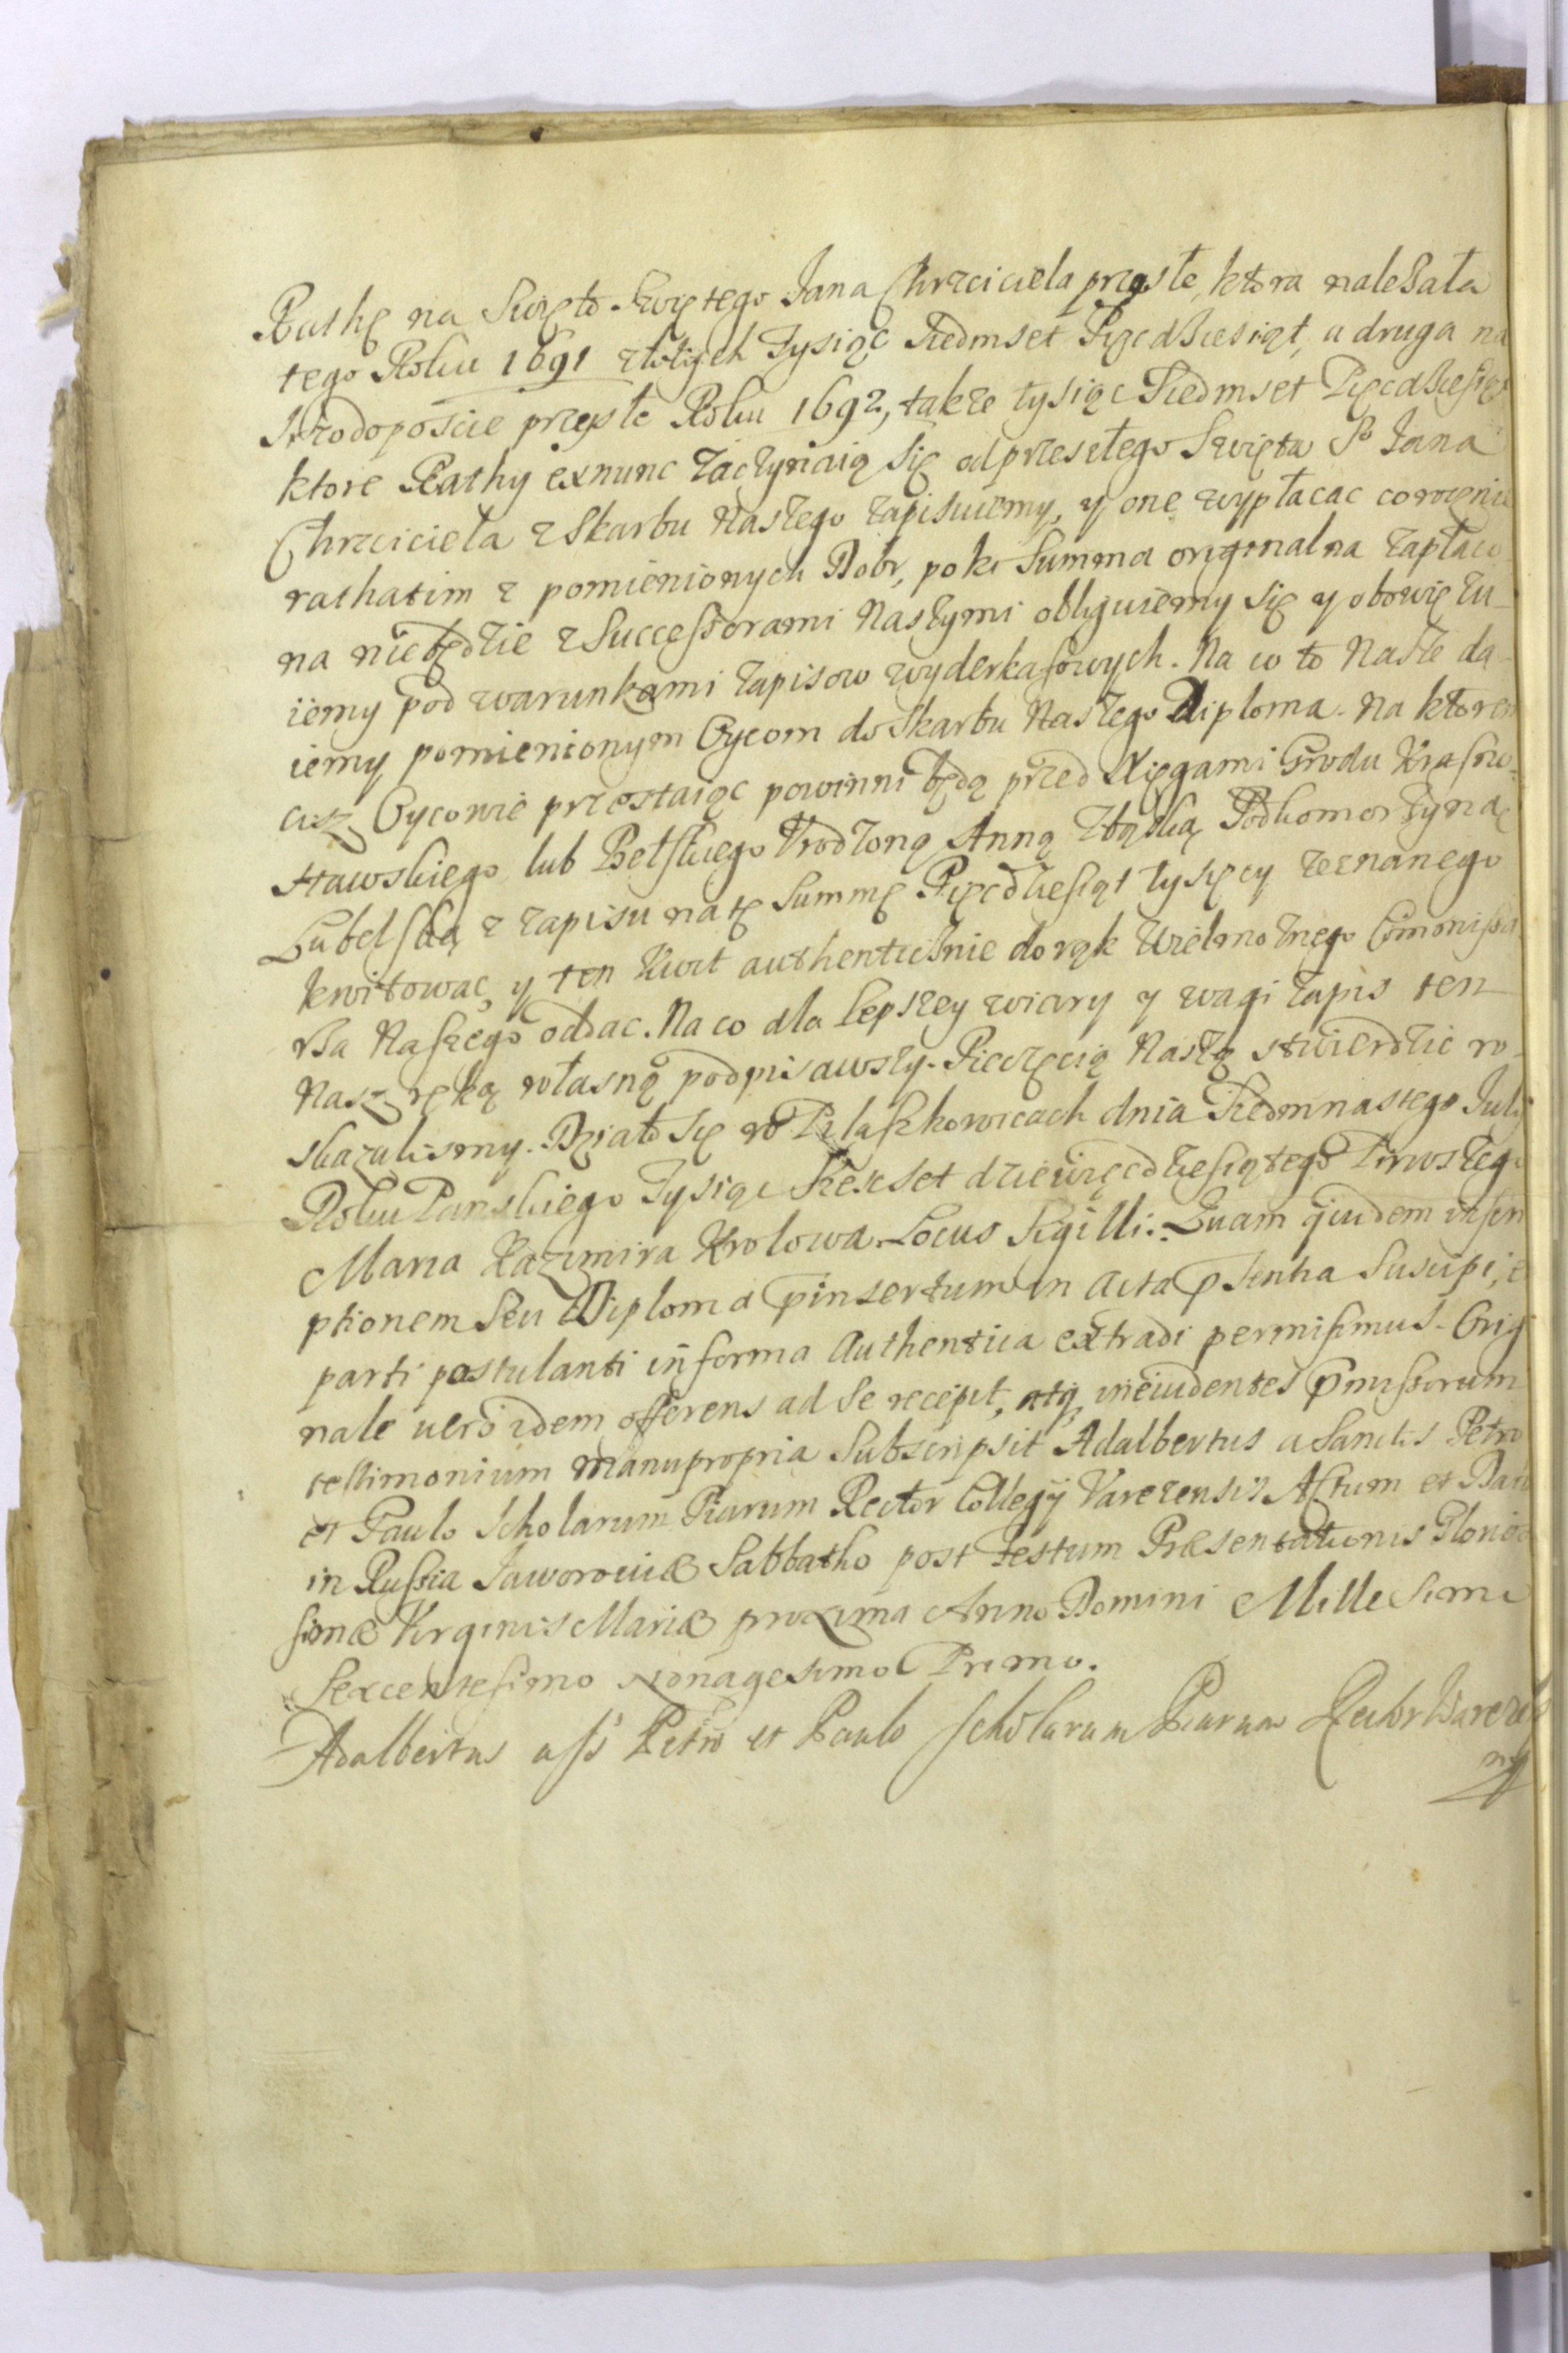 Rathę na Swięto Swiętego Jana Chrzciciela przeszłe, ktora nalezała
tego Roku 1691 złotych Tysiąc Siedmset Pięcdziesiąt, a druga na
Srzodoposcie przyszłe Roku 1692, także tysiąc Siedmset Pięcdziesiąt
ktore Rathy exnunc zaczynaią się od przeszłego Swięta S° Jana
Chrzciciela z Skarbu Naszego zapisuiemy, y one wypłacac corocznie
rathatim z pomienionych Dobr, poki Summa originalna zapłaco
na niebędzie z Successorami Naszymi obliguiemy się y obowięzu-
iemy pod warunkami zapisow wyderkafowych. Na co to Nasze da-
iemy pomienionym Oycom do Skarbu Naszego Diploma. Na ktorem
cisz Oycowie przestaiąc powinni będą przed Xięgami Grodu Krasno-
stawskiego lub Bełskiego Urodzoną Annę Zbąską Podkomorzynę
Lubelską z zapisu na tę Summę Pięcdziesiąt tysięcy zeznanego
kwitowac, y ten kwit authenticznie do rąk Wielmoznego Commissa
rza Naszego oddac. Na co dla lepszey wiary y wagi zapis ten
Nasz ręką własną podpisawszy. Pieczęcią Naszą stwierdzic ro-
skazalismy. Działo się w Pilaszkowicach dnia Siedmnastego Julij
Roku Panskiego Tysiąc Szescset dziewięcdziesiątego Pirwszego
Maria Kazimira Krolowa. Locus Sigilli: Quam quidem inscri
ptionem seu Diploma pinsertum in Acta psentia suscipi, et
parti postulanti in forma Authentica extradi permisimus. Origi
nale uero idem offerens ad se recepit, atq, ineiudentes pmissorum
testimonium manupropria subscripsit Adalbertus a Sanctis Petro
et Paulo Scholarum Piarum Rector Collegij Varezensis Actum et Datum
in Russia Jaworoviæ Sabbatho post Festum Præsentationis Glorio
simæ Virginis Mariæ proxima Anno Domini Millesimo
Sexcentesimo Nonagesimo Primo.
Adalbertus a SS Petro et Paulo Scholarum Piarum Rector Varezen
mp